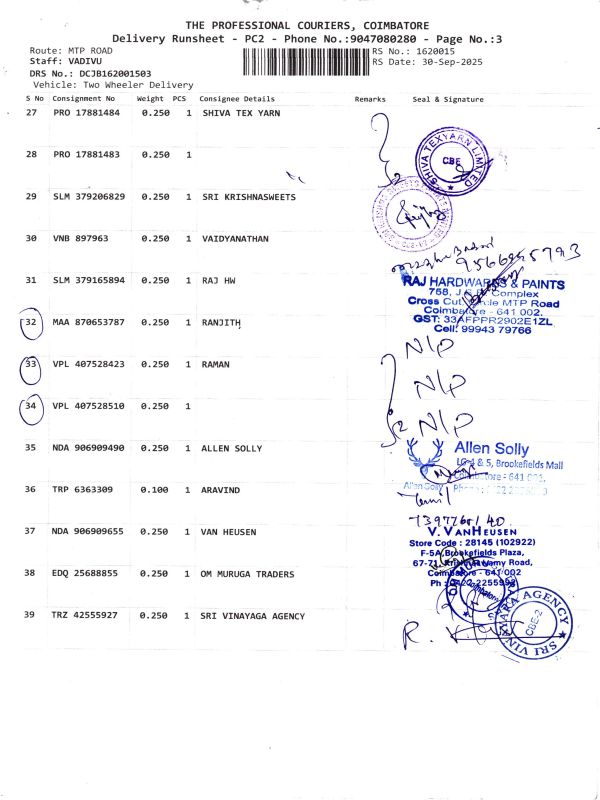 THE PROFESSIONAL COURIERS, COIMBATORE
Delivery Runsheet - PC2 - Phone No.:9047080280 - Page No.:3
Route: MTP ROAD RS No.: 1620015
Staff: VADIVU RS Date: 30-Sep-2025
DRS No.: DCJB162001503
Vehicle: Two Wheeler Delivery
S No Consignment No Weight PCS Consignee Details Remarks Seal & Signature
27 PRO 17881484 0.250 1 SHIVA TEX YARN
28 PRO 17881483 0.250 1
SHIVA TEXYARN LIMITED
CBE
2
29 SLM 379206829 0.250 1 SRI KRISHNASWEETS
30 VNB 897963 0.250 1 VAIDYANATHAN
31 SLM 379165894 0.250 1 RAJ HW
RAJ HARDWARES & PAINTS
758, Complex
Cross Cut MTP Road
Coimbatore - 641 002.
GST: 33AFPPR2902E1ZL
Cell: 99943 79766
32 MAA 870653787 0.250 1 RANJITH
N/P
33 VPL 407528423 0.250 1 RAMAN
N/P
34 VPL 407528510 0.250 1
2 N/P
35 NDA 906909490 0.250 1 ALLEN SOLLY
Allen Solly
& 5, Brookefields Mall
Coimbatore - 641 001.
Allen Solly
36 TRP 6363309 0.100 1 ARAVIND
37 NDA 906909655 0.250 1 VAN HEUSEN
V. VANHEUSEN
Store Code : 28145 (102922)
F-5A, Brookefields Plaza,
67-71, Krishnaswamy Road,
Coimbatore - 641 002
Ph :
38 EDQ 25688855 0.250 1 OM MURUGA TRADERS
39 TRZ 42555927 0.250 1 SRI VINAYAGA AGENCY
SRI VINAYAGA AGENCY
CBE-2